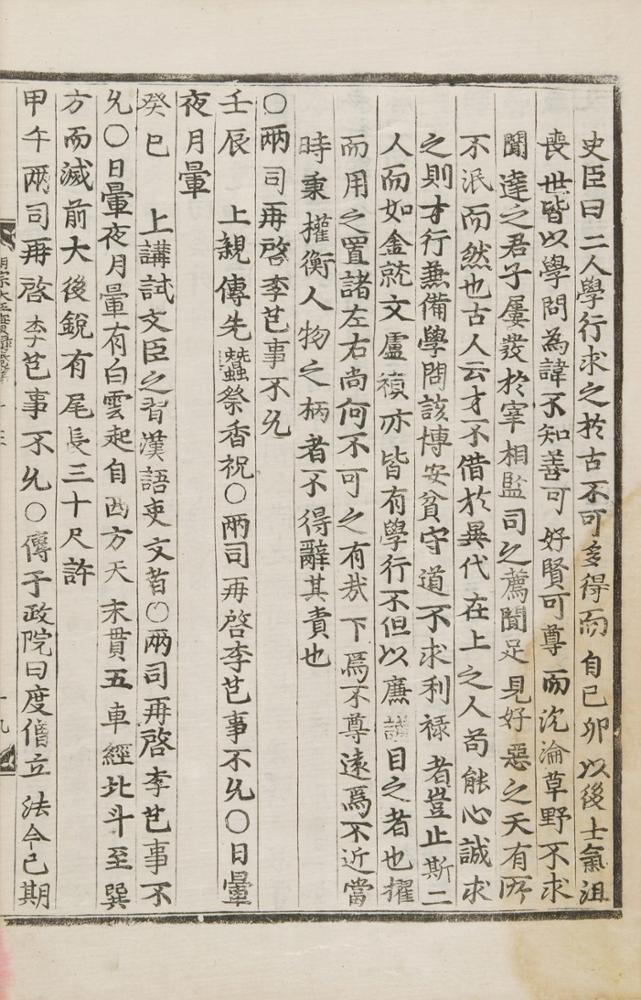 史臣曰二人學行求之於古不可多得而自己卯以後士氣沮
喪世皆以學問為諱不知善可好賢可尊而沉淪草野不求
聞達之君子屢發於宰相監司之薦聞足見好惡之天有所
不泯而然也古人云才不借於異代在上之人苟能心誠求
之則才行兼備學問該博安貧守道不求利祿者豈止斯二
人而如金就文盧禛亦皆有學行不但以廉謹目之者也擢
而用之置諸左右尚何不可之有哉下焉不尊遠焉不近當
時秉權衡人物之柄者不得辭其責也
○兩司再啓李芑事不允
壬辰 上親傳先蠶祭香祝○兩司再啓李芑事不允○日暈
夜月暈
癸巳 上講試文臣之習漢語吏文者○兩司再啓李芑事不
允○日暈夜月暈有白雲起自西方天末貫五車經北斗至巽
方而滅前大後銳有尾長三十尺許
甲午兩司再啓李芑事不允○傳于政院曰度僧立法今已期